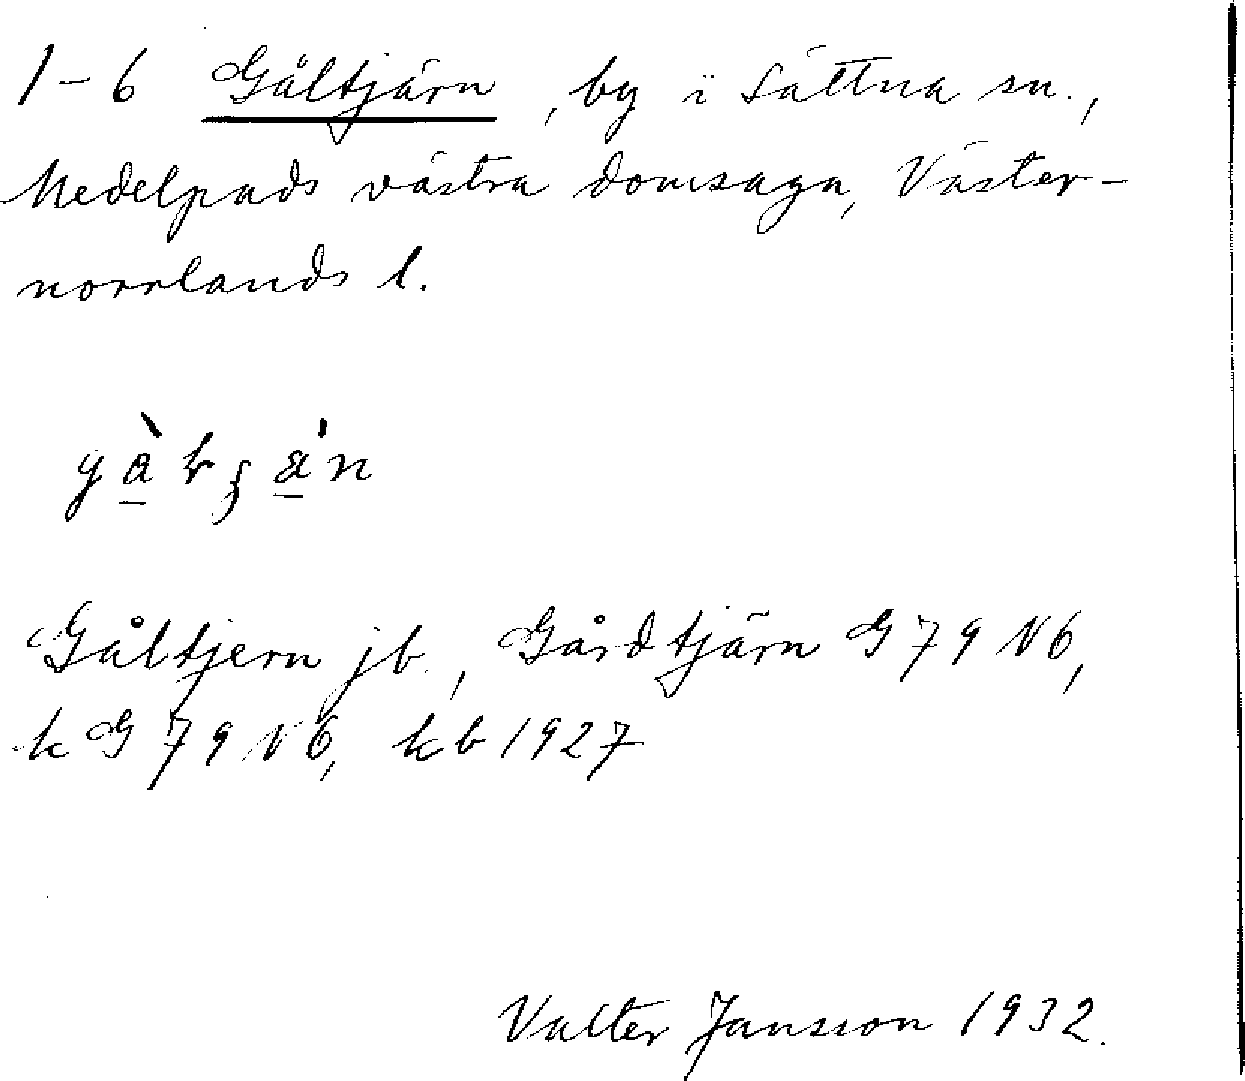 1–6 Gåltjärn, by i Sättna sn.,
Medelpads västra domsaga, Väster-
norrlands l.
Gåltjern jb., Gårdtjärn G 79 N6,
k G 79 N6, kb 1927
Valter Jansson 1932.